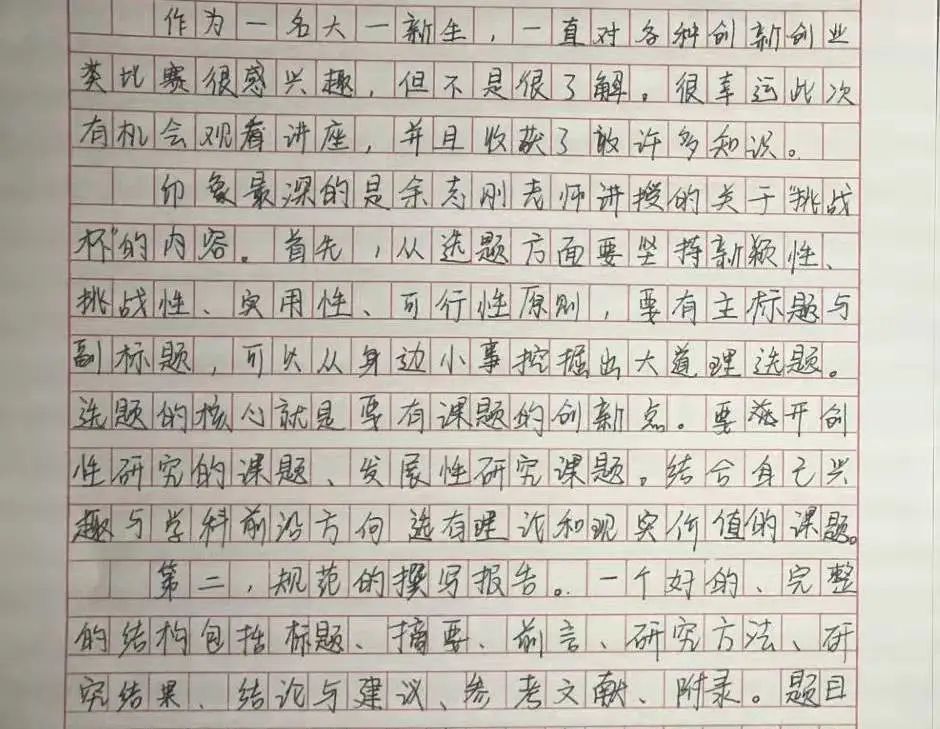 作为一名大一新生，一直对各种创新创业
类比赛很感兴趣，但不是很了解。很幸运此次
有机会观看讲座，并且收获了许多知识。
印象最深的是余志刚老师讲授的关于“挑战
杯”的内容。首先，从选题方面要坚持新颖性、
挑战性、实用性、可行性原则，要有主标题与
副标题，可以从身边小事挖掘出大道理选题。
选题的核心就是要有课题的创新点。要选开创
性研究的课题、发展性研究课题。结合自己兴
趣与学科前沿方向选有理论和现实价值的课题。
第二，规范的撰写报告。一个好的、完整
的结构包括标题、摘要、前言、研究方法、研
究结果、结论与建议、参考文献、附录。题目